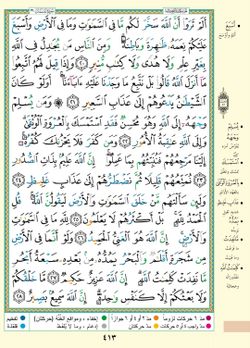 أَلَمْ تَرَوْا۟ أَنَّ ٱللَّهَ سَخَّرَ لَكُم مَّا فِى ٱلسَّمَـٰوَٰتِ وَمَا فِى ٱلْأَرْضِ وَأَسْبَغَ
عَلَيْكُمْ نِعَمَهُۥ ظَـٰهِرَةً وَبَاطِنَةً وَمِنَ ٱلنَّاسِ مَن يُجَـٰدِلُ فِى ٱللَّهِ
بِغَيْرِ عِلْمٍ وَلَا هُدًى وَلَا كِتَـٰبٍ مُّنِيرٍ ٢٠ وَإِذَا قِيلَ لَهُمُ ٱتَّبِعُوا۟
مَآ أَنزَلَ ٱللَّهُ قَالُوا۟ بَلْ نَتَّبِعُ مَا وَجَدْنَا عَلَيْهِ ءَابَآءَنَآ أَوَلَوْ كَانَ
ٱلشَّيْطَـٰنُ يَدْعُوهُمْ إِلَىٰ عَذَابِ ٱلسَّعِيرِ ٢١ ۞ وَمَن يُسْلِمْ
وَجْهَهُۥٓ إِلَى ٱللَّهِ وَهُوَ مُحْسِنٌ فَقَدِ ٱسْتَمْسَكَ بِٱلْعُرْوَةِ ٱلْوُثْقَىٰ
وَإِلَى ٱللَّهِ عَـٰقِبَةُ ٱلْأُمُورِ ٢٢ وَمَن كَفَرَ فَلَا يَحْزُنكَ كُفْرُهُۥٓ
إِلَيْنَا مَرْجِعُهُمْ فَنُنَبِّئُهُم بِمَا عَمِلُوٓا۟ إِنَّ ٱللَّهَ عَلِيمٌۢ بِذَاتِ ٱلصُّدُورِ
٢٣ نُمَتِّعُهُمْ قَلِيلًا ثُمَّ نَضْطَرُّهُمْ إِلَىٰ عَذَابٍ غَلِيظٍ ٢٤
وَلَئِن سَأَلْتَهُم مَّنْ خَلَقَ ٱلسَّمَـٰوَٰتِ وَٱلْأَرْضَ لَيَقُولُنَّ ٱللَّهُ قُلِ
ٱلْحَمْدُ لِلَّهِ بَلْ أَكْثَرُهُمْ لَا يَعْلَمُونَ ٢٥ لِلَّهِ مَا فِى ٱلسَّمَـٰوَٰتِ
وَٱلْأَرْضِ إِنَّ ٱللَّهَ هُوَ ٱلْغَنِىُّ ٱلْحَمِيدُ ٢٦ وَلَوْ أَنَّمَا فِى ٱلْأَرْضِ
مِن شَجَرَةٍ أَقْلَـٰمٌ وَٱلْبَحْرُ يَمُدُّهُۥ مِنۢ بَعْدِهِۦ سَبْعَةُ أَبْحُرٍ
مَّا نَفِدَتْ كَلِمَـٰتُ ٱللَّهِ إِنَّ ٱللَّهَ عَزِيزٌ حَكِيمٌ ٢٧ مَّا خَلْقُكُمْ
وَلَا بَعْثُكُمْ إِلَّا كَنَفْسٍ وَٰحِدَةٍ إِنَّ ٱللَّهَ سَمِيعٌۢ بَصِيرٌ ٢٨
٤١٣